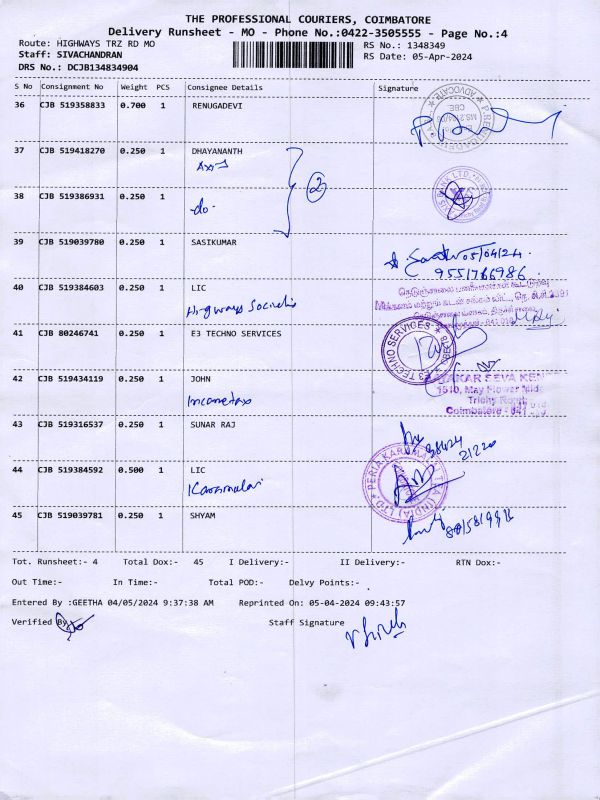 THE PROFESSIONAL COURIERS, COIMBATORE
Delivery Runsheet - MO - Phone No.:0422-3505555 - Page No.:4
Route: HIGHWAYS TRZ RD MO RS No.: 1348349
Staff: SIVACHANDRAN RS Date: 05-Apr-2024
DRS No.: DCJB134834904
S No Consignment No Weight PCS Consignee Details Signature
36 CJB 519358833 0.700 1 RENUGADEVI
ADVOCATE
CBE
37 CJB 519418270 0.250 1 DHAYANANTH
Axis
2
38 CJB 519386931 0.250 1
-do-
39 CJB 519039780 0.250 1 SASIKUMAR
05/04/24
9551766986
40 CJB 519384603 0.250 1 LIC
Highways Societies
41 CJB 80246741 0.250 1 E3 TECHNO SERVICES
E3 TECHNO SERVICES
42 CJB 519434119 0.250 1 JOHN
Incometax
1510, May Flower
Trichy Road
Coimbatore - 641
43 CJB 519316537 0.250 1 SUNAR RAJ
44 CJB 519384592 0.500 1 LIC
Karamalai
PERIA KARAMALAI TEA (INDIA) LTD
45 CJB 519039781 0.250 1 SHYAM
Tot. Runsheet:- 4 Total Dox:- 45 I Delivery:- II Delivery:- RTN Dox:-
Out Time:- In Time:- Total POD:- Delvy Points:-
Entered By :GEETHA 04/05/2024 9:37:38 AM Reprinted On: 05-04-2024 09:43:57
Verified By Staff Signature